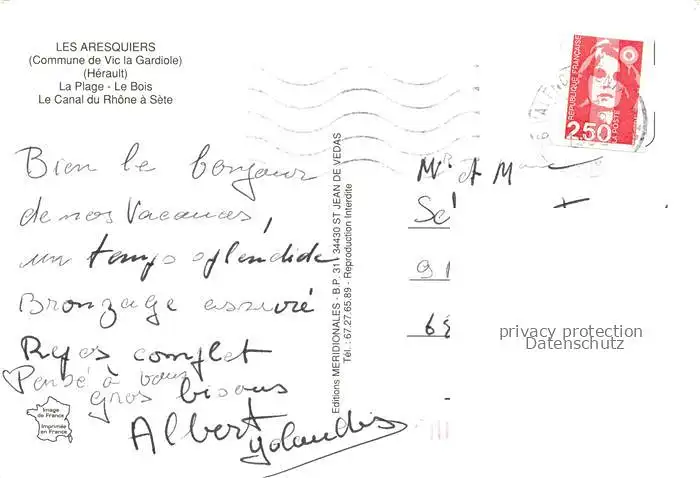 LES ARESQUIERS
(Commune de Vic la Gardiole)
(Hérault)
La Plage - Le Bois
Le Canal du Rhône à Sète
RÉPUBLIQUE FRANÇAISE
2,50
LA POSTE
Bien le bonjour
de nos Vacances,
un temps splendide
Bronzage assuré
Repos complet
Pensé à vous
gros bisous
Albert
Yolande
Image
de France
Imprimée
en France
Editions MERIDIONALES - B.P. 31 - 34430 ST JEAN DE VEDAS
Tél.: 67.27.65.89 - Reproduction Interdite
Mr et Mme
91
privacy protection
Datenschutz